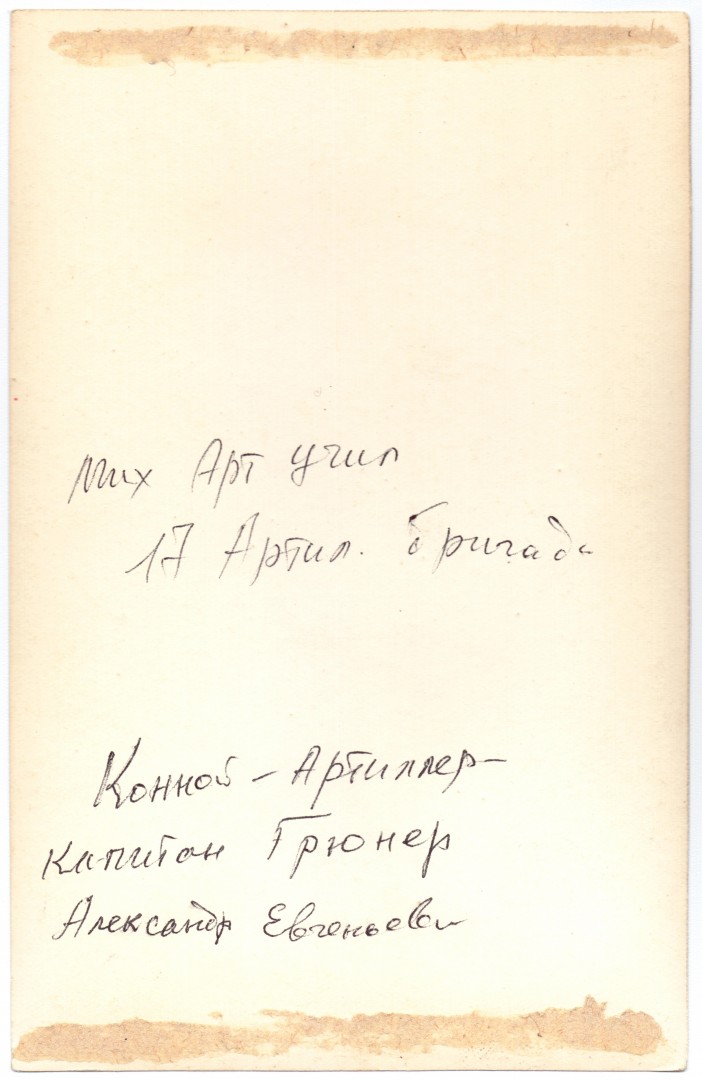 Мих Арт учил
17 Артил. бригада
Конной - Артиллер-
Капитан Грюнер
Александр Евгеньеви